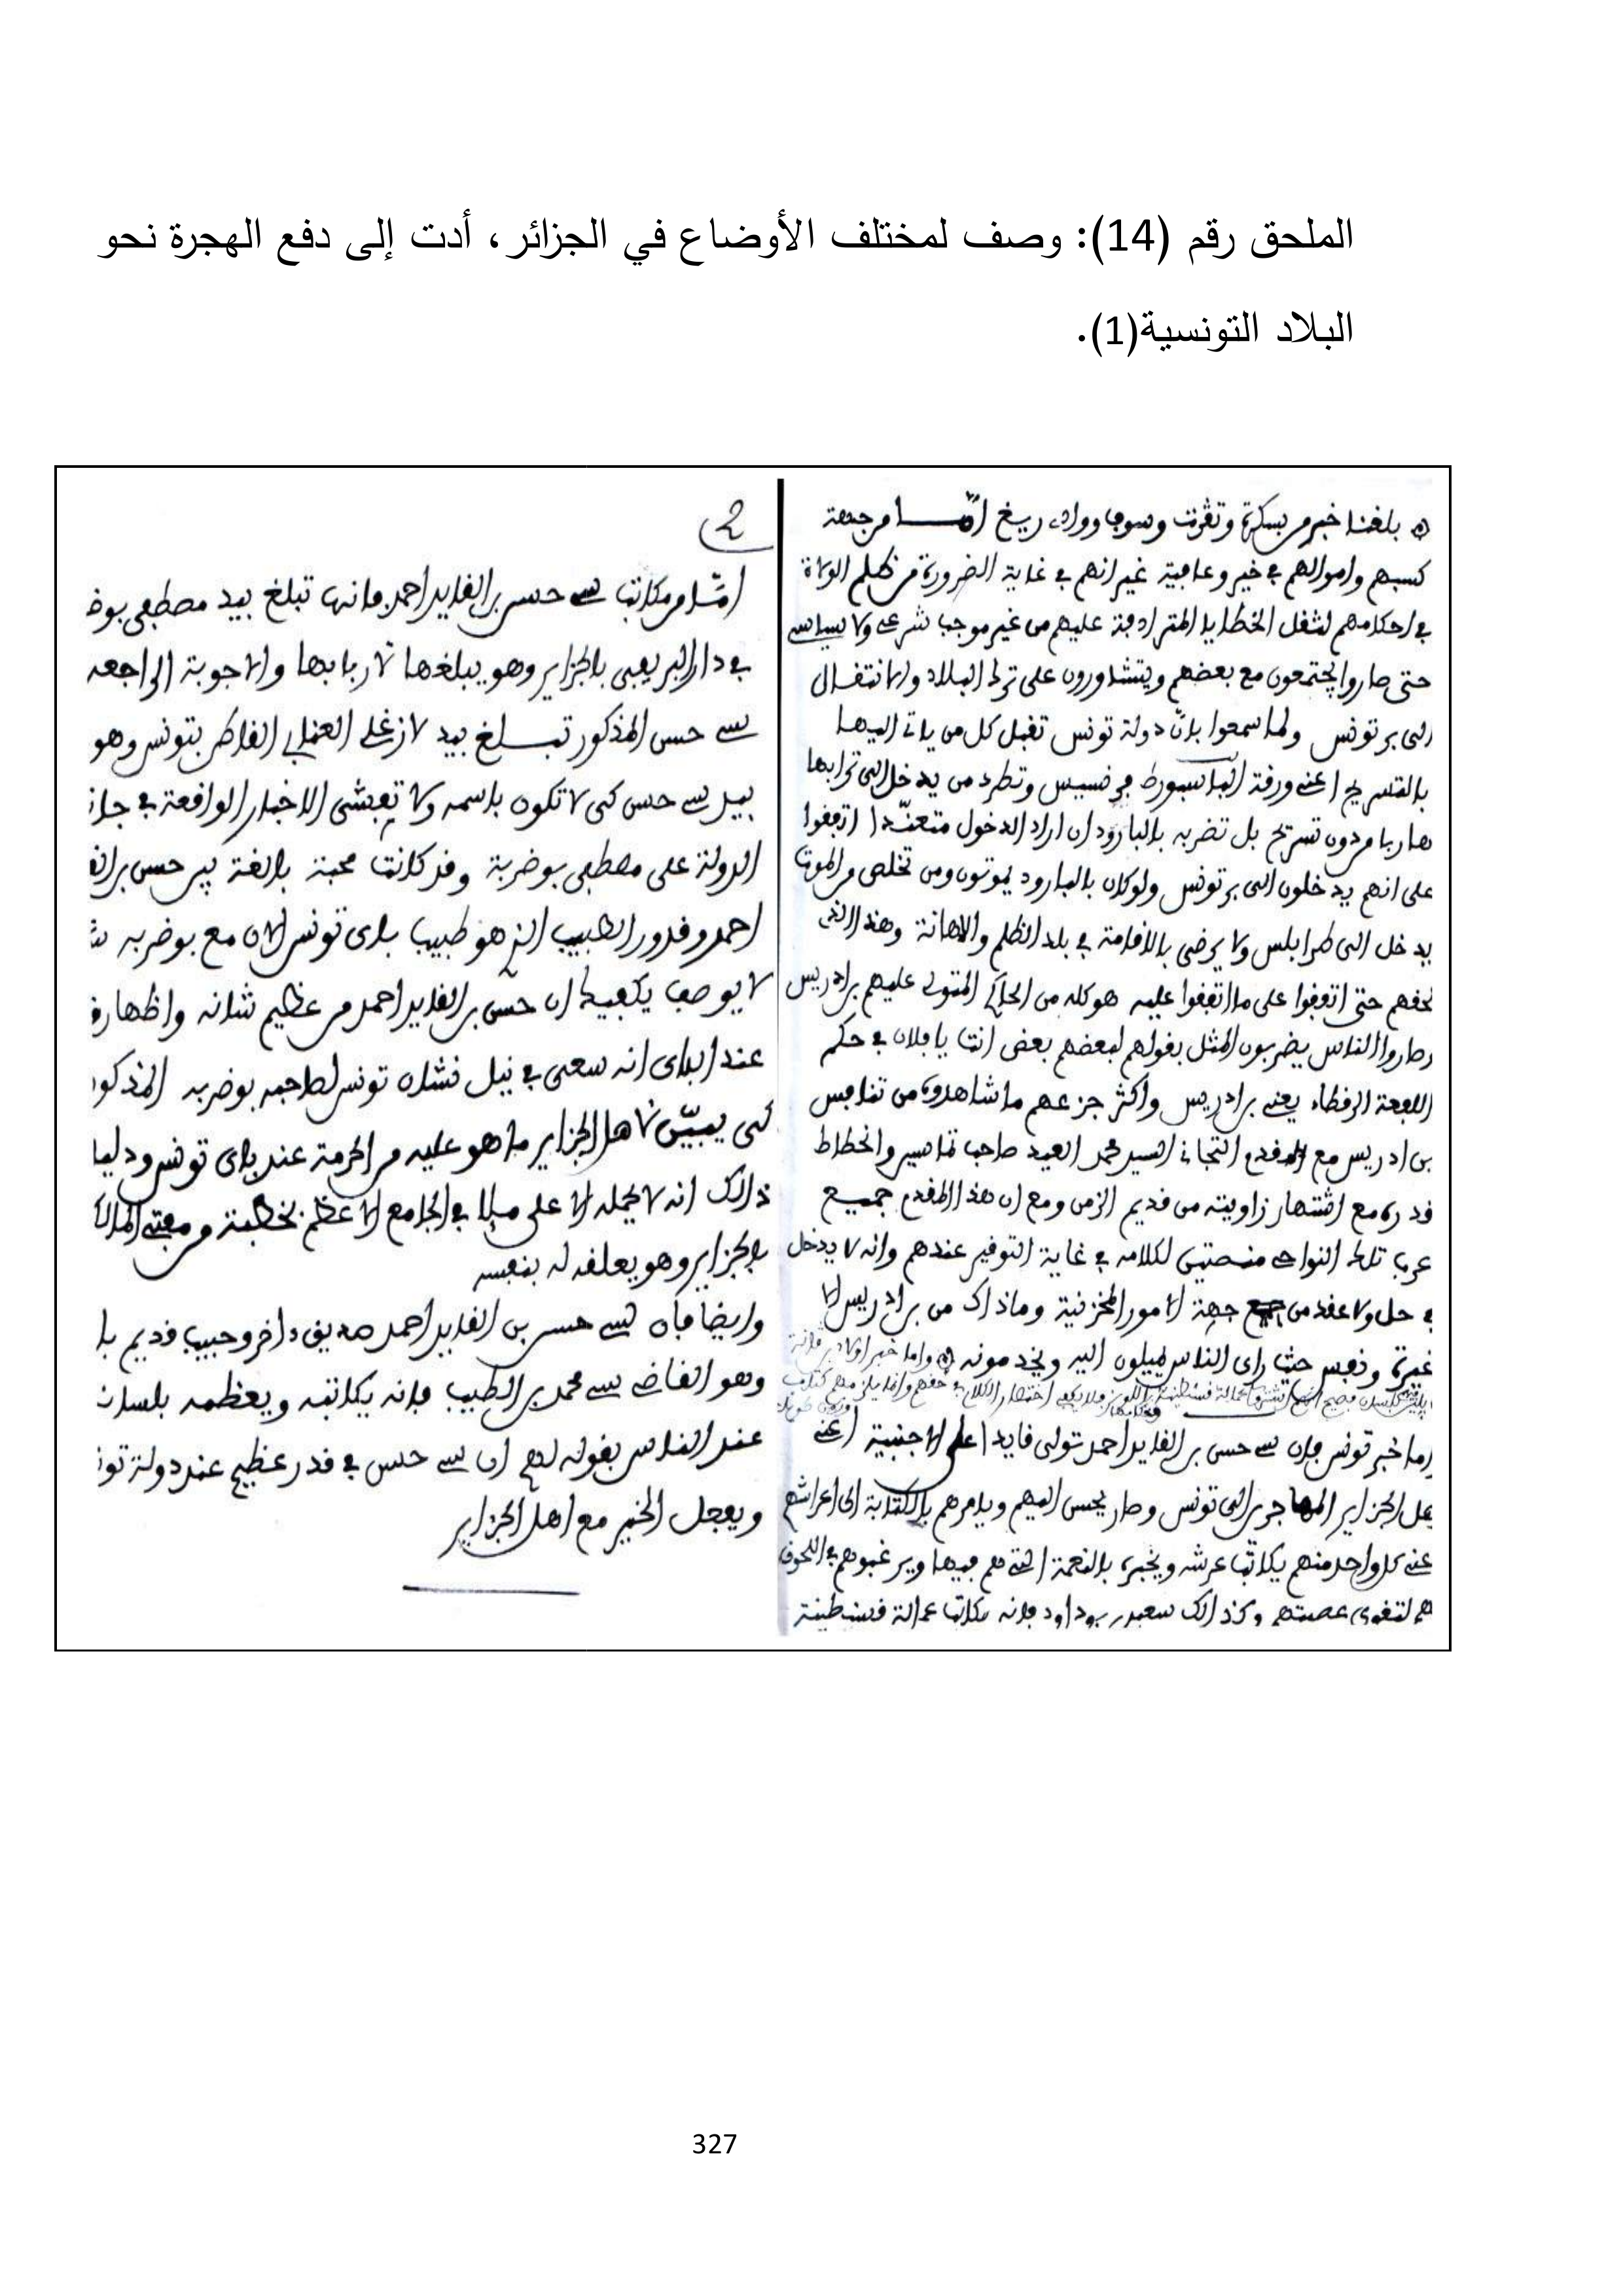 الملحق رقم (14): وصف لمختلف الأوضاع في الجزائر، أدت إلى دفع الهجرة نحو
البلاد التونسية(1).
بلغنا خبر من بسكرة وتڤرت وسوف وواد ريغ امّا من جهة
كسبهم واموالهم في خير وعافية غير انهم في غاية الضرورة من ظلم الولاة
في احكامهم لثقل الخطايا المترادفة عليهم من غير موجب شرعي ولا سياسي
حتى صاروا يجتمعون مع بعضهم ويتشاورون على ترك البلاد والانتقال
الى بر تونس ولما سمعوا بانّ دولة تونس تقبل كل من ياتي اليها
بالتسريح اعني ورقة الباسبورط من فسيس وتطرد من يدخل الى ترابها
هاربا من دون تسريح بل تضربه بالبارود ان اراد الدخول متعنّدا اتفقوا
على انهم يدخلون الى بر تونس ولو كان بالبارود يموتون ومن تخلص من الموت
يدخل الى طرابلس ولا يرضى بالاقامة في بلد الظلم والاهانة وهذا الذي
لحقهم حتى اتفقوا على ما اتفقوا عليه هو كله من الحاكم المتولى عليهم بن ادريس
وصاروا الناس يضربون المثل بقولهم لبعضهم بعض انت يا فلان في حكم
اللفعة الرقطاء يعني بن ادريس واكثر جزعهم ما شاهدوه من تنافس
بن ادريس مع المقدم التجاني السيد محمد العيد صاحب تماسين وانحطاط
قدره مع اشتهار زاويته من قديم الزمن ومع ان هذا المقدم جميع
عرب تلك النواحي منصتين لكلامه في غاية التوقير عندهم وانه لا يدخل
في حل ولا عقد من جهة الامور المخزنية وما ذاك من بن ادريس الا
غيرة ونفس حيث راى الناس يميلون اليه ويخدمونه واما خبر اولاد
واما خبر تونس فان سي حسن بن القايد احمد تولى قايدا على الاجنبية اعني
عمل الجزاير المهاجرين الى تونس وصار يحسن اليهم ويامرهم بالكتابة الى اعراشهم
عني كل واحد منهم يكاتب عرشه ويخبره بالنعمة التي هم فيها ويرغبوهم في اللحوق
هم لتقوى عصبتهم وكذالك سعيد بن بوداود فانه يكاتب عمالة قسنطينة
2
امّا من مكاتب سي حسن بن القايد احمد فانها تبلغ بيد مصطفى بوض
في دار البريعي بالجزاير وهو يبلغها لاربابها والاجوبة الراجعه
سي حسن المذكور تبلغ بيد لازغلي العنابي القاطن بتونس وهو
بيد سي حسن كي لا تكون باسمه ولا تفشى الاخبار الواقعة في جان
الدولة على مصطفى بوضربة وقد كانت محبة بالغة بين حسن بن الق
احمد وقدور الطبيب الذي هو طبيب باي تونس الان مع بوضربه
لا يوصف يكفيك ان حسن بن القايد احمد من عظيم شانه واظهار
عند الباي انه سعى في نيل نشان تونس لصاحبه بوضربه المذكور
كي يبيّن لاهل الجزاير ما هو عليه من الحرمة عند باي تونس ودليل
ذالك انه لا يحمله الا على ملا في الجامع الاعظم بخطبة من مفتي المال
بالجزاير وهو يعلقه له بنفسه
وايضا فان لسي حسن بن القايد احمد صديق اخر وحبيب قديم با
وهو القاضي سي محمد بن الطيب فانه يكاتبه ويعظمه بلسان
عند الناس بقوله لهم ان سي حسن في قدر عظيم عند دولة تون
ويفعل الخير مع اهل الجزاير
327